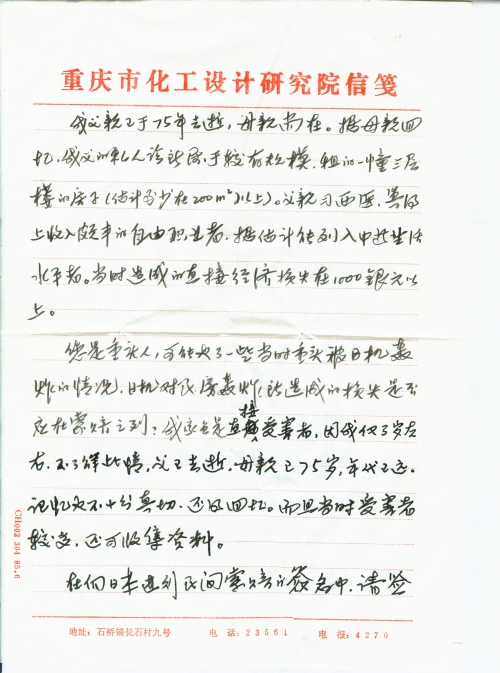 重庆市化工设计研究院信笺
我父亲已于75年去逝，母亲尚在。据母亲回
忆，我父的私人诊所属于较有规模，租的一幢三层
楼的房子（估计至少在200m²以上）。父亲习西医，是
上收入颇丰的自由职业者，据估计能列入中等生活
水平者。当时造成的直接经济损失在1000银元以
上。
您是重庆人，可能也了一些当时重庆被日机轰
炸的情况，日机对民房轰炸，所造成的损失是否
应在索赔之列；我家也是直接受害者，因我仅3岁左
右，不了解此情，父已去逝，母亲已75岁，年代已远，
记忆也不十分真切，还的回忆。而且当时受害者
较多，还可收集资料。
在向日本进行民间索赔的签名中，请签
地址：石桥铺长石村九号 电话：23561 电报：4270
CH082 304 85.6